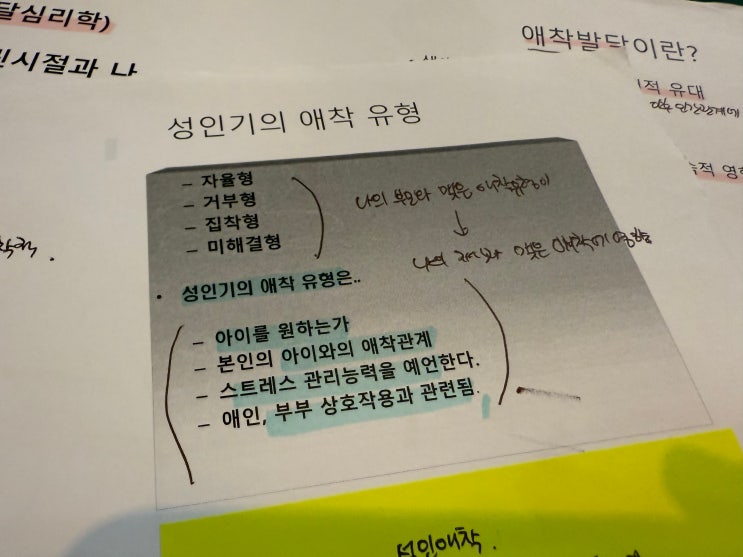 달심리학)
린시절과 나
애착발달이란?
적 유대
성인기의 애착 유형
– 자율형
– 거부형
– 집착형
– 미해결형
나의 부모와 맺은 애착유형이
↓
나의 자녀와 맺은 애착에 영향
• 성인기의 애착 유형은..
– 아이를 원하는가
– 본인의 아이와의 애착관계
– 스트레스 관리능력을 예언한다.
– 애인, 부부 상호작용과 관련됨.
성인애착.